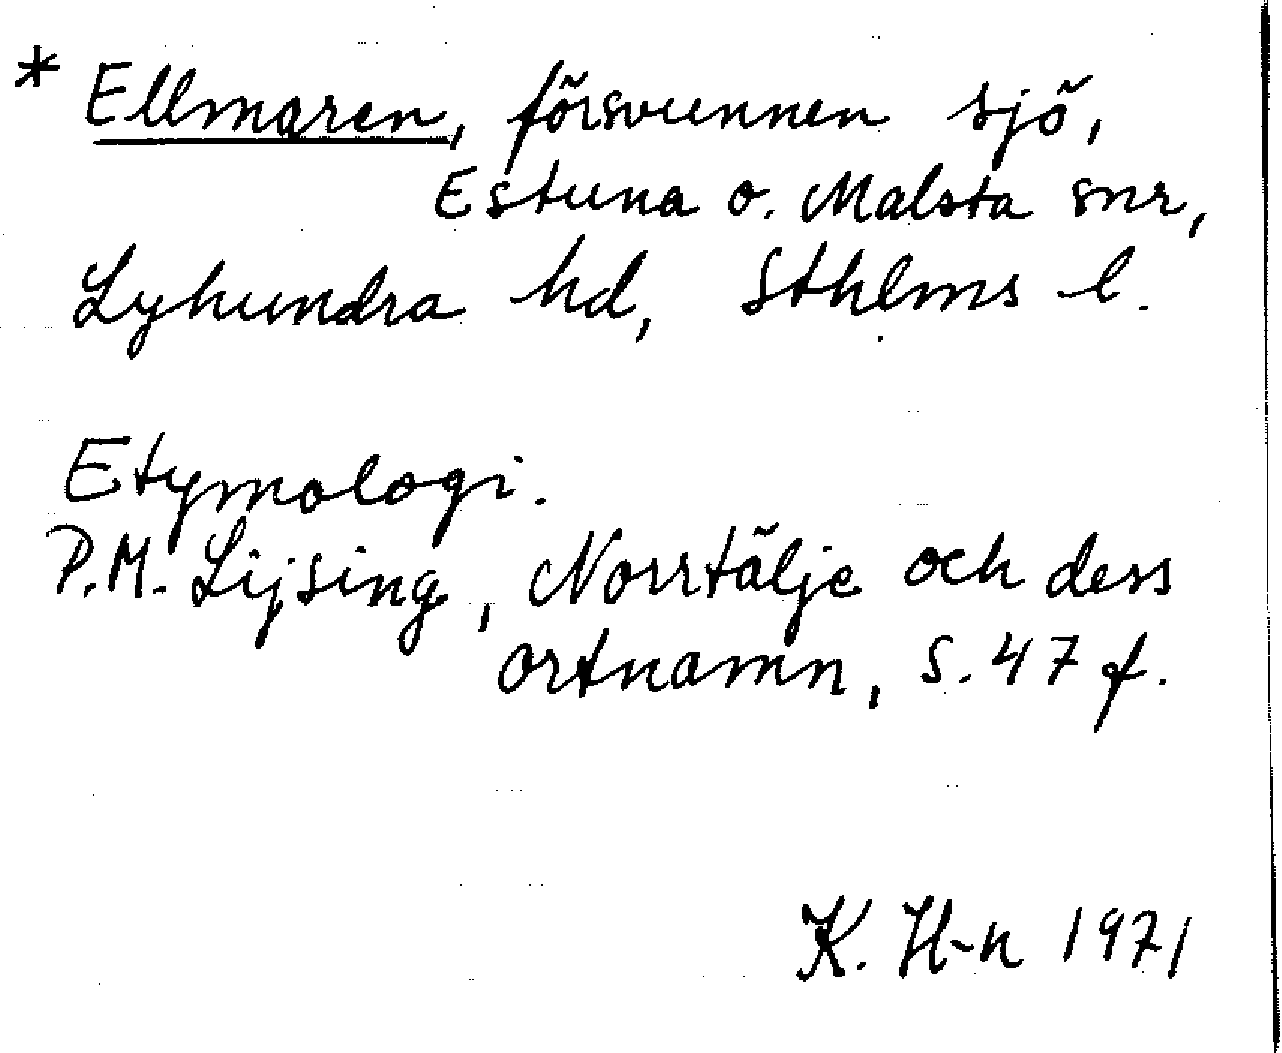 * Ellmaren, försvunnen sjö,
Estuna o. Malsta snr,
Lyhundra hd, Sthlms l.
Etymologi.
P.M. Lijsing, Norrtälje och dess
ortnamn, s. 47 f.
K. H-n 1971